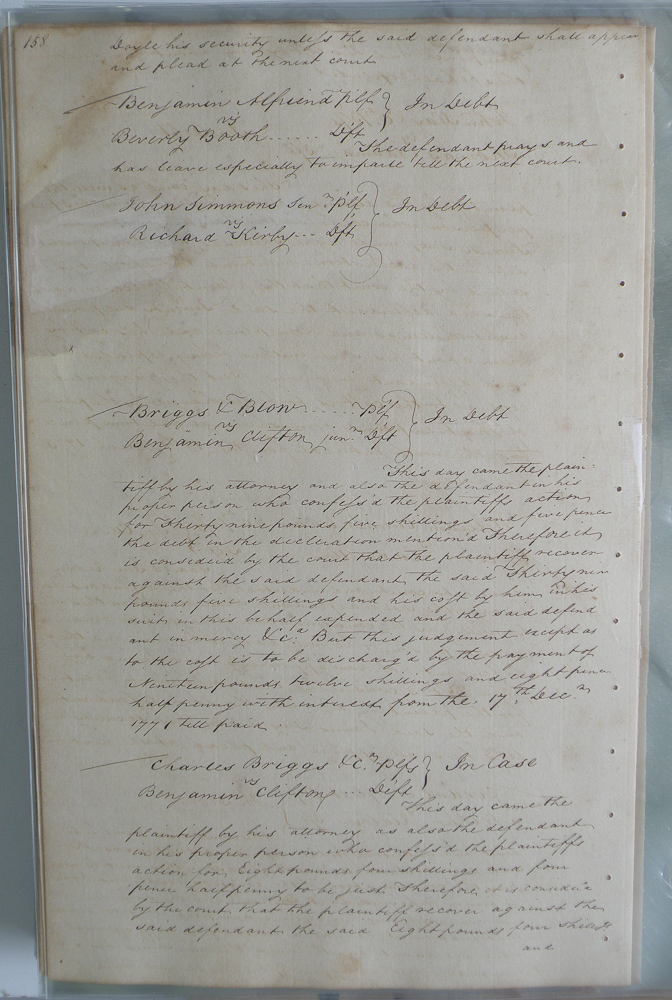 158
Doyle his security unless the said defendant shall appear
and plead at the next court
Benjamin Alfriend Plf } In Debt
vs
Beverly Booth ...... Dft
The defendant prays and
has leave especially to imparle till the next court.
John Simmons Senr Plf } In Debt
vs
Richard Kirby ... Dft
Briggs & Blow ...... Plf } In Debt
vs
Benjamin Clifton junr Dft
This day came the plain=
tiff by his attorney and also the defendant in his
proper person who confess'd the plaintiffs action
for Thirty nine pounds five shillings and five pence
the debt in the declaration mention'd Therefore it
is consider'd by the court that the plaintiff recover
against the said defendant the said Thirty nine
pounds five shillings and his cost by him in his
suit in this behalf expended and the said defend
ant in mercy &c.a But this judgement except as
to the cost is to be discharg'd by the payment of
Nineteen pounds twelve shillings and eight pence
half penny with interest from the 17th Decr
1771 till paid
Charles Briggs &c.a Plfs } In Case
vs
Benjamin Clifton ... Deft
This day came the
plaintiff by his attorney as also the defendant
in his proper person who confess'd the plaintiffs
action for Eight pounds four shillings and four
pence half penny to be just Therefore it is consider'd
by the court that the plaintiff recover against the
said defendant the said Eight pounds four shillings
and